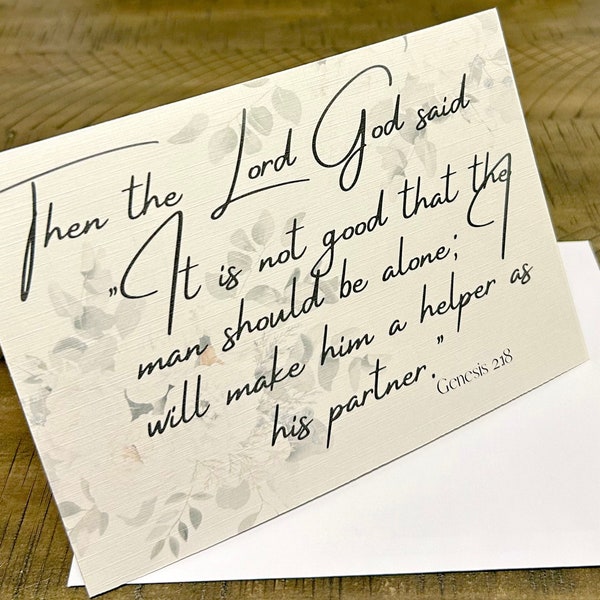 Then the Lord God said
"It is not good that the
man should be alone; I
will make him a helper as
his partner."
Genesis 2:18